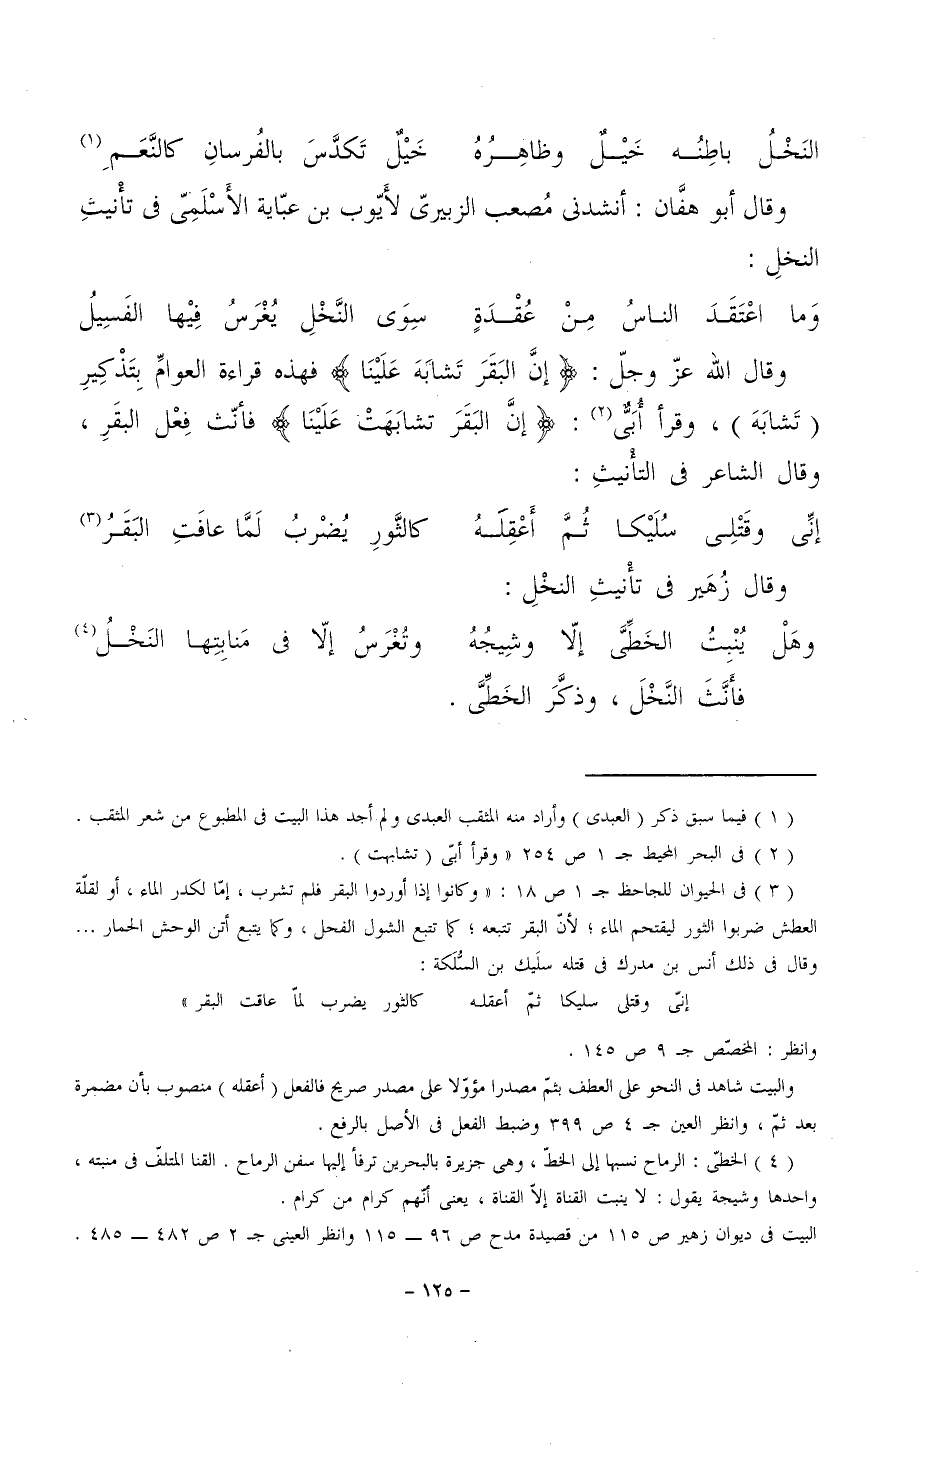 النَخْلُ باطِنُـه خَيْـلٌ وظاهِـرُهُ خَيْلٌ تَكدَّسَ بالفُرسانِ كالنَّعَـمِ(١)
وقال أبو هفَّان : أنشدنى مُصعب الزبيرىّ لأَيّوب بن عبّاية الأَسْلَمِىّ فى تأْنيثِ
النخلِ :
وَما اعْتَقَدَ الناسُ مِنْ عُقْدَةٍ سِوَى النَّخْلِ يُغْرَسُ فِيْها الفَسِيلُ
وقال الله عزّ وجلّ : ﴿ إنَّ البَقَرَ تَشابَهَ عَلَيْنَا ﴾ فهذه قراءة العوامِّ بِتَذْكِيرِ
( تَشابَهَ ) ، وقرأ أُبَىٌّ(٢) : ﴿ إنَّ البَقَرَ تشابَهَتْ عَلَيْنَا ﴾ فأنّث فِعْل البقَرِ ،
وقال الشاعر فى التأْنيثِ :
إنِّى وقَتْلِى سُلَيْكـا ثُـمَّ أَعْقِلَـهُ كالثَّورِ يُضْرَبُ لَمَّا عافَتِ البَقَـرُ(٣)
وقال زُهَير فى تأْنيثِ النخْلِ :
وهَلْ يُنْبِتُ الخَطِّىَّ إلّا وشيجُهُ وتُغْرَسُ إلّا فى مَنابِتِهـا النَخْـلُ(٤)
فأَنَّثَ النَّخْلَ ، وذكَّرَ الخَطِّىَّ .
( ١ ) فيما سبق ذكر ( العبدى ) وأراد منه المثقب العبدى ولم أجد هذا البيت فى المطبوع من شعر المثقب .
( ٢ ) فى البحر المحيط جـ ١ ص ٢٥٤ « وقرأ أبىّ ( تشابهت ) .
( ٣ ) فى الحيوان للجاحظ جـ ١ ص ١٨ : « وكانوا إذا أوردوا البقر فلم تشرب ، إمّا لكدر الماء ، أو لقلّة
العطش ضربوا الثور ليقتحم الماء ؛ لأنّ البقر تتبعه ؛ كما تتبع الشول الفحل ، وكما يتبع أتن الوحش الحمار ...
وقال فى ذلك أنس بن مدرك فى قتله سلَيك بن السُّلَكة :
إنّى وقتلى سليكا ثمّ أعقلـه كالثور يضرب لمّا عاقت البقر »
وانظر : المخصّص جـ ٩ ص ١٤٥ .
والبيت شاهد فى النحو على العطف بثمّ مصدرا مؤوّلا على مصدر صريح فالفعل ( أعقله ) منصوب بأن مضمرة
بعد ثمّ ، وانظر العين جـ ٤ ص ٣٩٩ وضبط الفعل فى الأصل بالرفع .
( ٤ ) الخطىّ : الرماح نسبها إلى الخطّ ، وهى جزيرة بالبحرين ترفأ إليها سفن الرماح . القنا الملتفّ فى منبته ،
واحدها وشيجة يقول : لا ينبت القناة إلاّ القناة ، يعنى أنّهم كرام من كرام .
البيت فى ديوان زهير ص ١١٥ من قصيدة مدح ص ٩٦ ــ ١١٥ وانظر العينى جـ ٢ ص ٤٨٢ ــ ٤٨٥ .
- ١٢٥ -